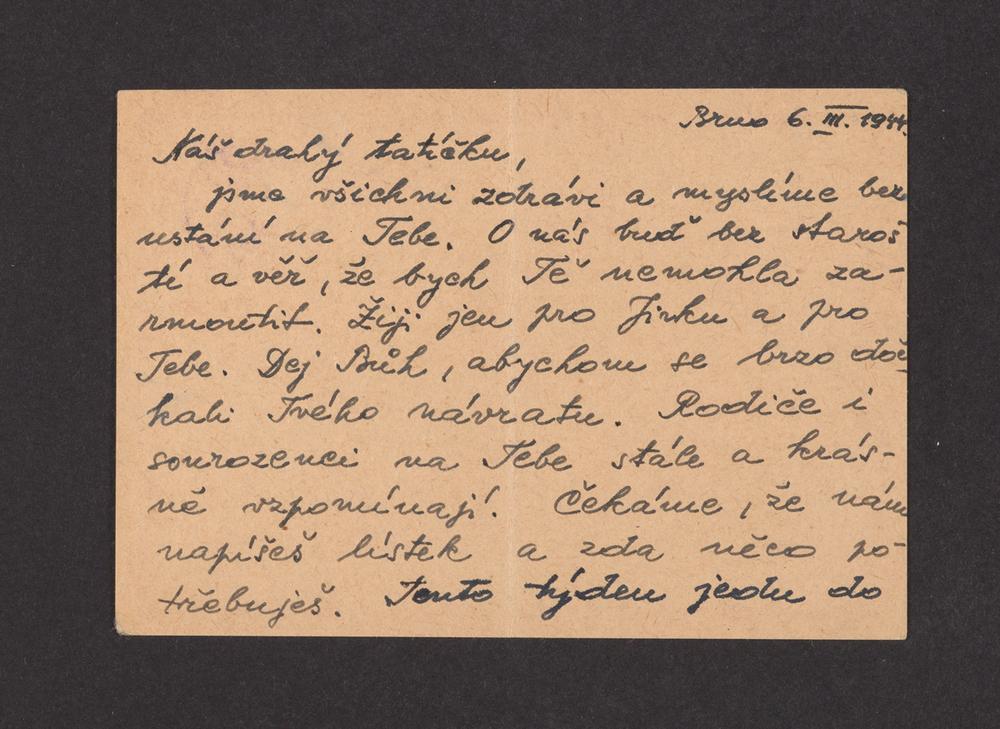 Brno 6. III. 1944.
Náš drahý tatíčku,
jsme všichni zdrávi a myslíme bez
ustání na Tebe. O nás buď bez staros
tí a věř, že bych Tě nemohla za-
rmoutit. Žiji jen pro Jirku a pro
Tebe. Dej Bůh, abychom se brzo doč
kali Tvého návratu. Rodiče i
sourozenci na Tebe stále a krás-
ně vzpomínají. Čekáme, že nám
napíšeš lístek a zda něco po-
třebuješ. Tento týden jedu do